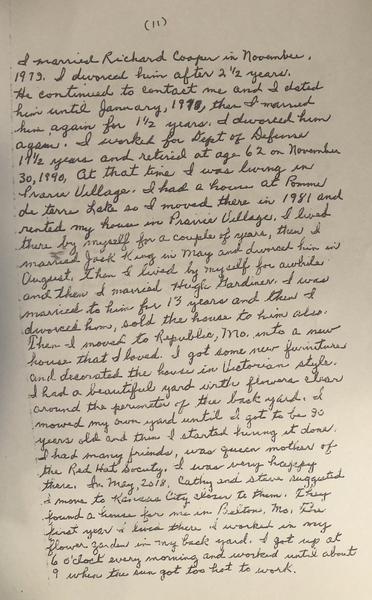 (11)
I married Richard Cooper in November,
1973. I divorced him after 2 1/2 years.
He continued to contact me and I dated
him until January, then I married
him again for 1 1/2 years. I divorced him
again. I worked for Dept of Defense
19 1/2 years and retired at age 62 on November
30, 1990, At that time I was living in
Prarie Village. I had a house at Pomme
de terre Lake so I moved there in 1981 and
rented my house in Prairie Village. I lived
there by myself for a couple of years, then I
married Jack King in May and divorced him in
August. Then I lived by myself for awhile
and then I married Hugh Gardiner. I was
married to him for 13 years and then I
divorced him, sold the house to him also.
Then I moved to Republic, Mo. into a new
house that I loved. I got some new furniture
and decorated the house in Victorian style.
I had a beautiful yard with flowers clear
around the perimeter of the back yard. I
mowed my own yard until I got to be
years old and then I started hiring it done.
I had many friends, was queen mother of
the Red Hat Society. I was very happy
there. In May, 2018, Cathy and Steve suggested
I move to Kansas City closer to them. They
found a house for me in Belton, Mo. The
first year I lived there I worked in my
flower garden in my back yard. I got up at
6 o'clock every morning and worked until about
9 when the sun got too hot to work.